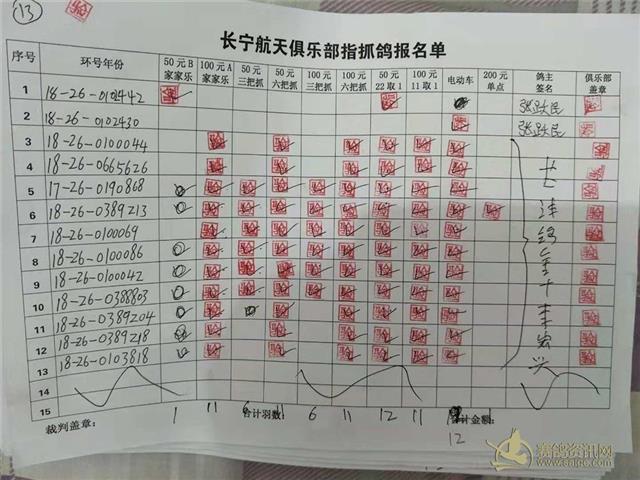 13
长宁航天俱乐部指抓鸽报名单
序号 环号年份 50元B家家乐 100元A家家乐 50元三把抓 50元六把抓 100元三把抓 100元六把抓 50元22取1 100元11取1 电动车 200元单点 鸽主签名 俱乐部盖章
1 18-26-0102442 张跃民
2 18-26-0102430 张跃民
3 18-26-0100044
4 18-26-0665626
5 17-26-0190868
6 18-26-0389213
7 18-26-0100069
8 18-26-0100086
9 18-26-0100042
10 18-26-0388803
11 18-26-0389204
12 18-26-0389218
13 18-26-0103818
14
15
裁判盖章： 1 11 6 合计羽数： 6 11 12 11 合计金额： 1
12
赛鸽资讯网
www.saige.com